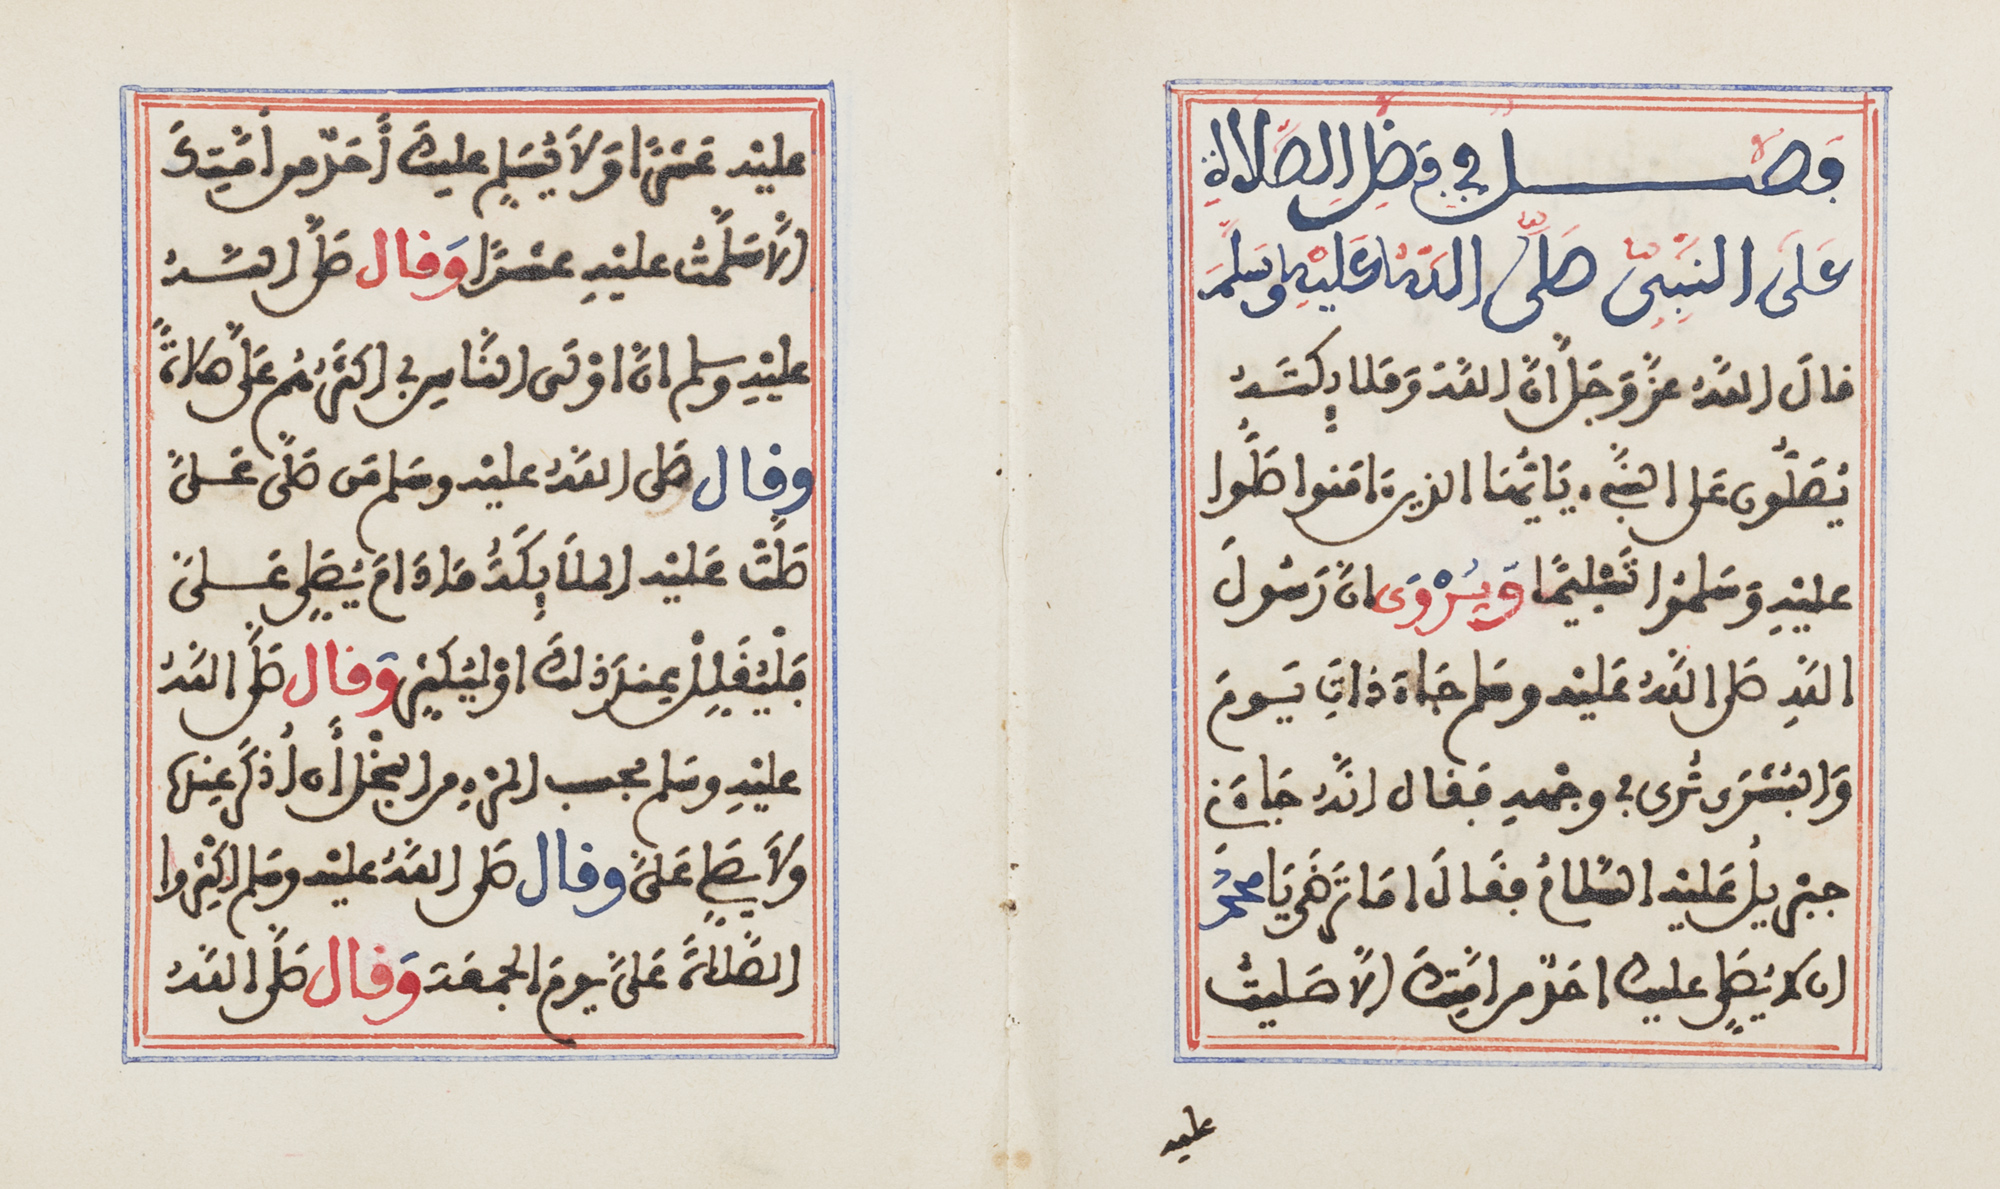 فَصْل في فَضْلِ الصَّلَاةِ
عَلَى النَّبِيِّ صَلَّى اللهُ عَلَيْهِ وَسَلَّمَ
قالَ اللهُ عَزَّ وَجَلَّ انَّ اللهَ وَمَلَائِكَتَهُ
يُصَلُّونَ عَلَى النَّبِيِّ . يَاأَيُّهَا الذِينَ ءَامَنوا صَلُّوا
عَلَيْهِ وَسَلِّمُوا تَسْلِيمًا وَيُرْوَى انَّ رَسُولَ
اللهِ صَلَّى اللهُ عَلَيْهِ وَسَلم جَاءَ ذَاتَ يَومٍ
وَالبُشْرَى تُرَى في وَجْهِهِ فَقَال انَّهُ جَاءَنِي
جِبْرِيلُ عَلَيْهِ السَّلامُ فَقَالَ امَا تَرْضَى يَا مُحَمَّدُ
ان لَا يُصَلِّي عَلَيْكَ احَدٌ من امَّتِكَ الَّا صَلَيْتُ
عليه
عَلَيْهِ عَشْرًا وَلَا يُسَلِّم عَلَيْكَ أَحَدٌ من أُمَّتِكَ
الَّا سَلَّمْتُ عَلَيْهِ عَشْرًا وَقال صَلَّى اللهُ
عَلَيْهِ وَسلم انَّ اوْلَى النَّاسِ بِي اكثَرُهُم عَلَيَّ صَلَاةً
وقال صَلى اللهُ عَلَيْهِ وسَلم مَن صَلَّى عَلَيَّ
صَلَّتْ عَلَيْهِ المَلَائِكَةُ مَا دَامَ يُصَلِّي عَلَيَّ
فَلْيُقَلِّلْ عِنْدَ ذَلِكَ اوْ لِيُكْثِرْ وَقال صَلَّى اللهُ
عَلَيْهِ وسَلم بحسب المَرْءِ من البُخْلِ أَن أُذْكَرَ عِنْدَهُ
وَلَا يُصَلِّي عَلَيَّ وقال صَلى اللهُ عَلَيْهِ وسَلم اكْثِرُوا
الصَّلَاةَ عَلَيَّ يَومَ الجمعَة وَقال صَلَّى اللهُ